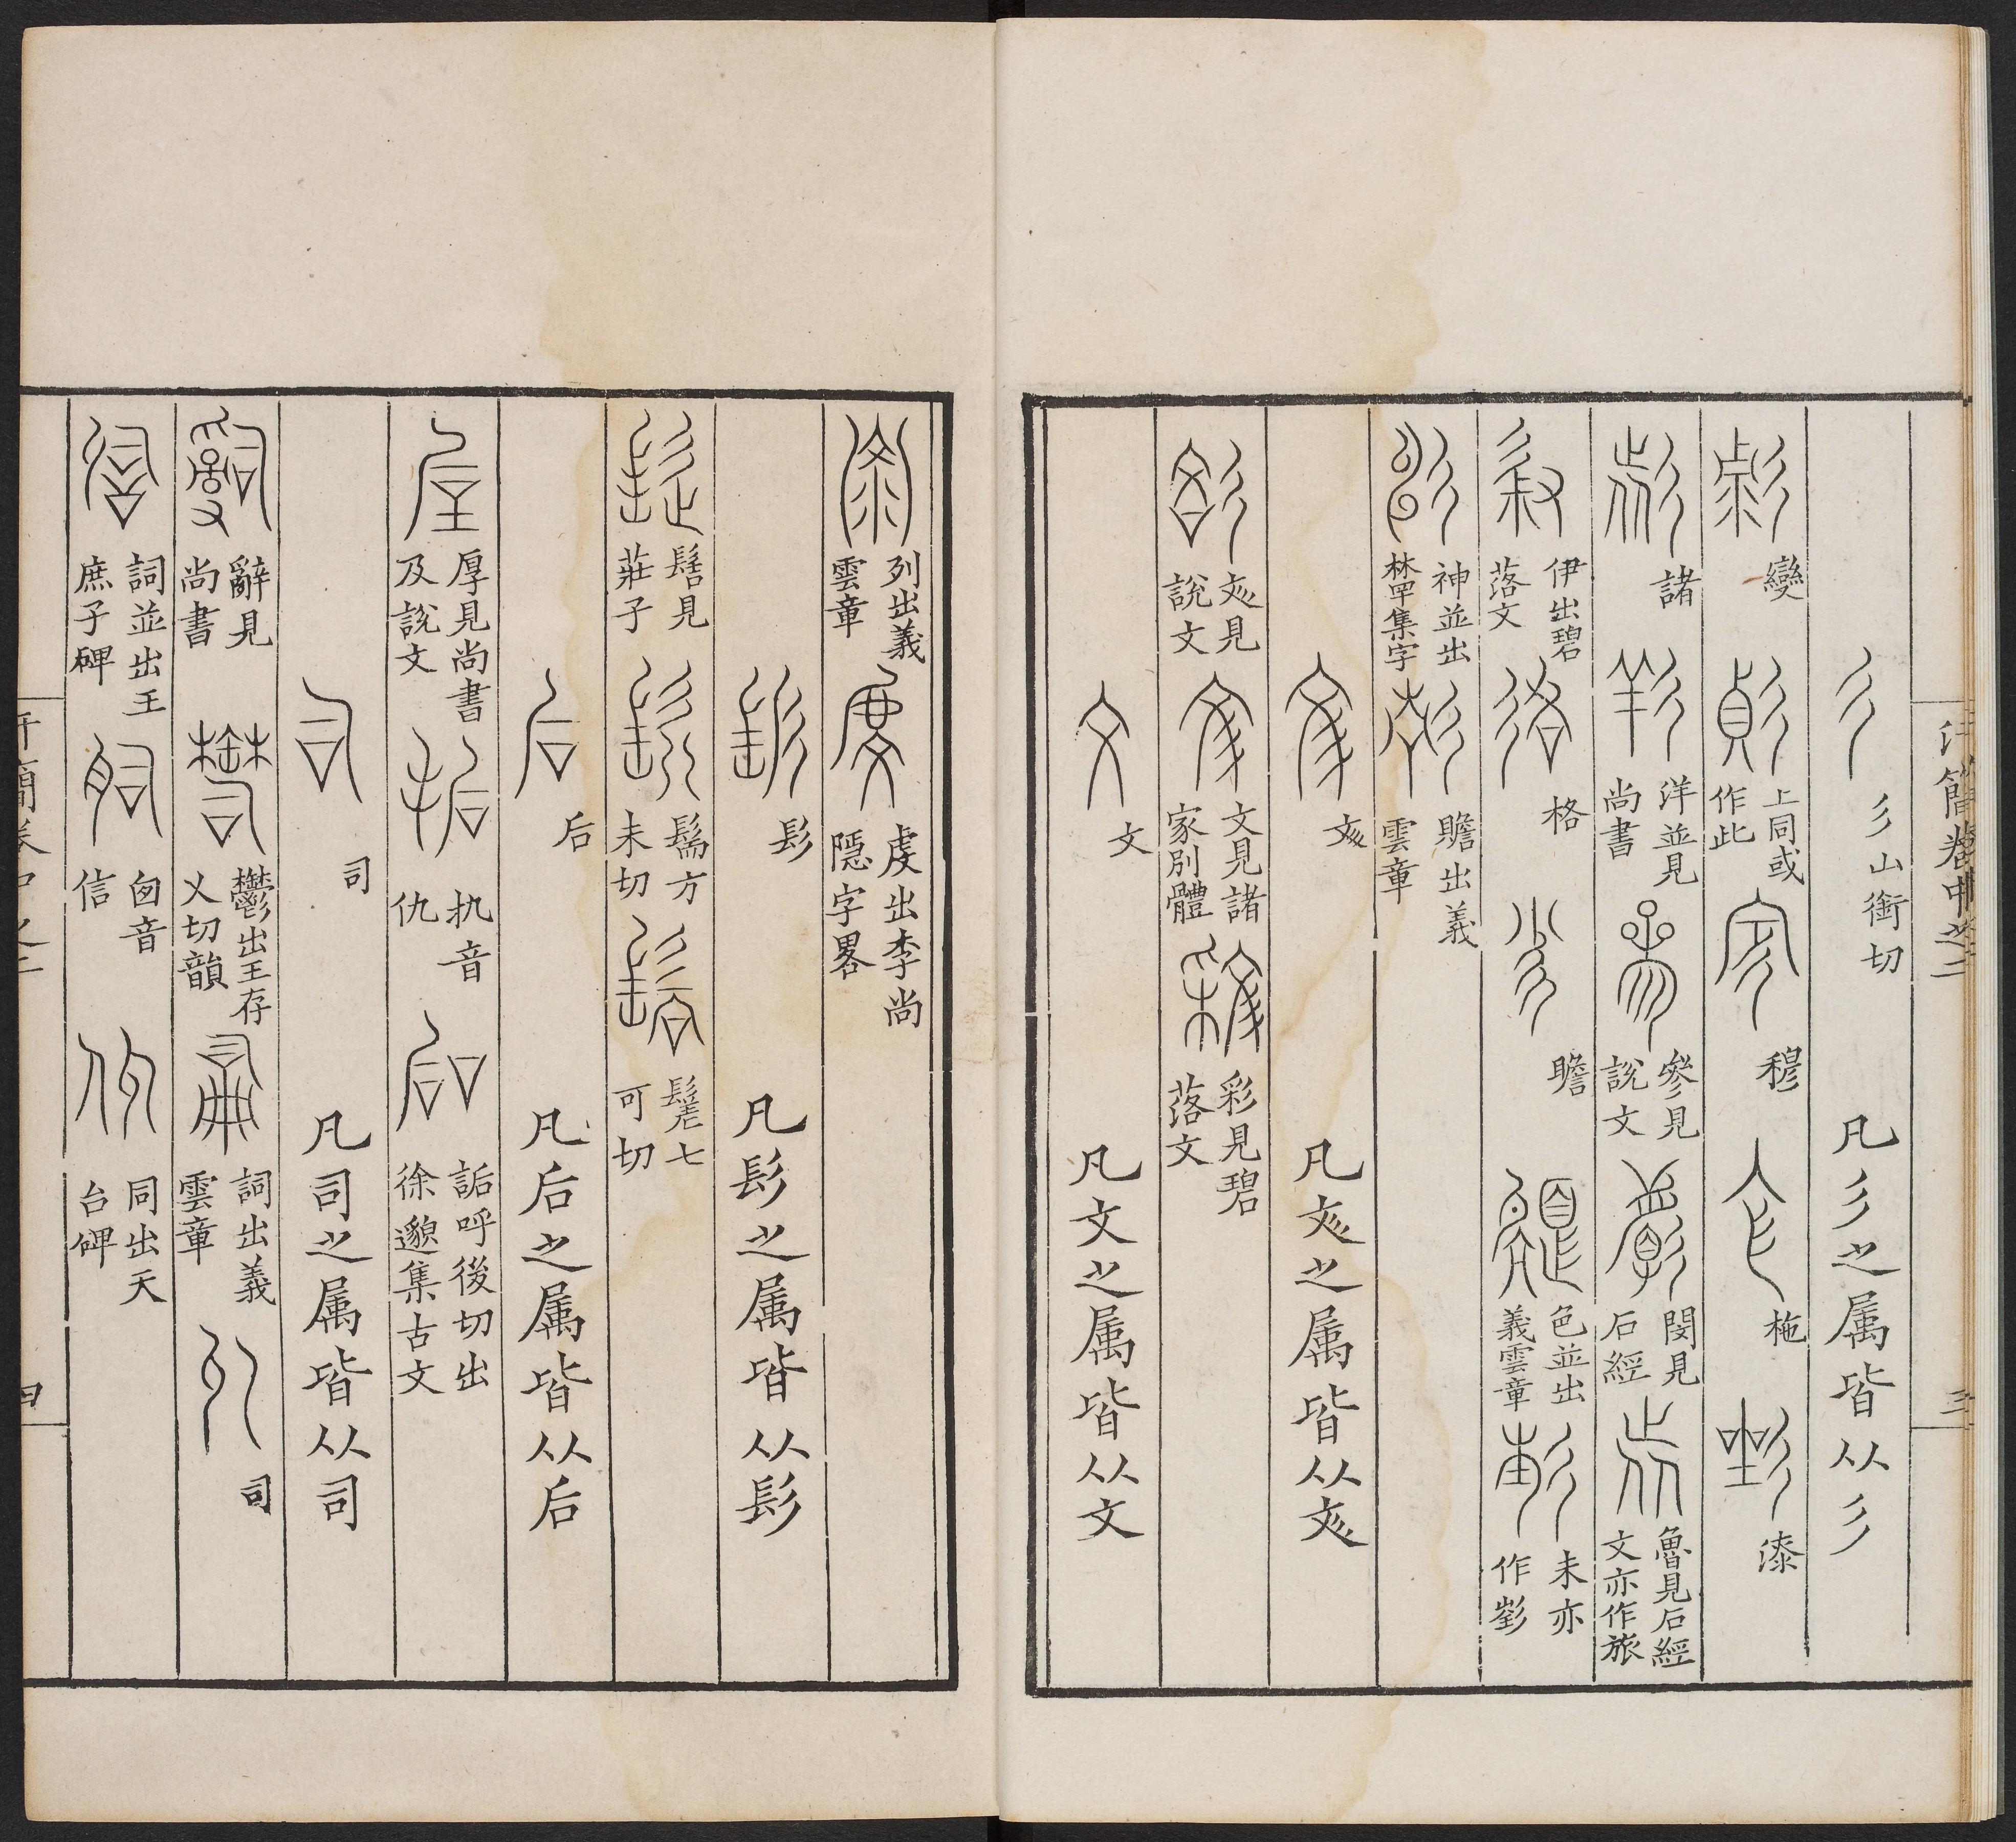 汗簡卷中之二 三
彡山銜切 凡彡之属皆从彡
變 上同或作此 穆 柂 漆
諸 洋並見尚書 參見說文 閔見石經 魯見石經文亦作旅
伊出碧落文 格 瞻 色並出義雲章 未亦作嶳
神並出林罕集字 贍出義雲章
彣 凡彣之属皆从彣
彣見說文 文見諸家別體 彩見碧落文
文 凡文之属皆从文
列出義雲章 虔出李尚隱字畧
髟 凡髟之属皆从髟
髻見莊子 髴方未切 髊七可切
后 凡后之属皆从后
厚見尚書及說文 㧈音仇 詬呼後切出徐邈集古文
司 凡司之属皆从司
辭見尚書 鬱出王存乂切韻 詞出義雲章 司
詞並出王庶子碑 囟音信 同出天台碑
汗簡卷中之二 四